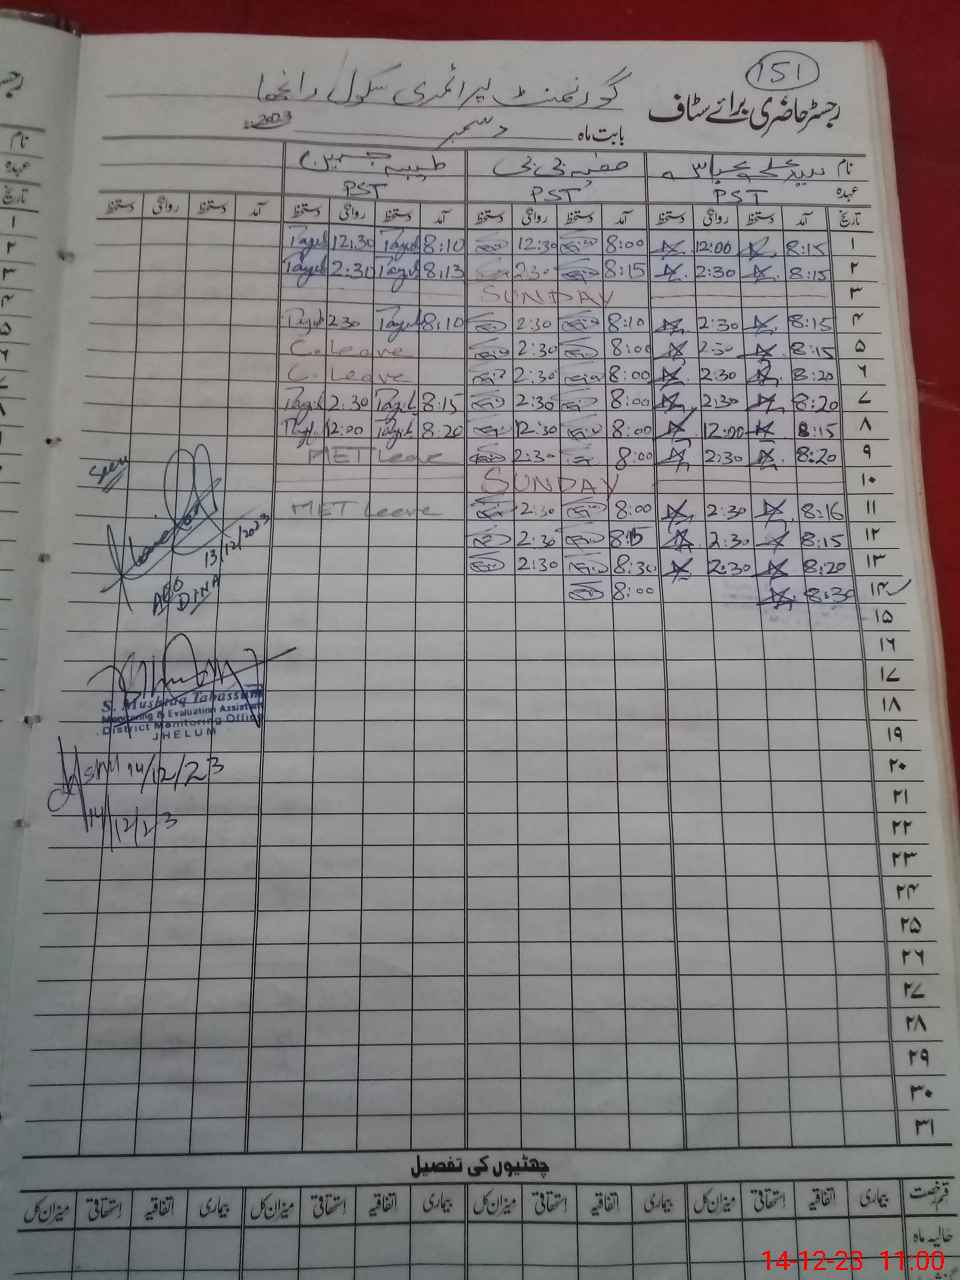 151
گورنمنٹ پرائمری سکول رانجھا
رجسٹر حاضری برائے سٹاف
بابت ماہ دسمبر 2023
نام صفیہ بی بی طیبہ جبین
عہدہ PST PST PST
تاریخ آمد دستخط روانگی دستخط آمد دستخط روانگی دستخط آمد دستخط روانگی دستخط آمد دستخط روانگی دستخط
۱ 8:15 12:00 8:00 12:30 8:10 Tayib 12:30 Tayib
۲ 8:15 2:30 8:15 2:30 8:13 Tayib 2:30 Tayib
۳ SUNDAY
۴ 8:15 2:30 8:10 2:30 8:10 Tayib 2:30 Tayib
۵ 8:15 2:30 8:00 2:30 C. Leave
۶ 8:20 2:30 8:00 2:30 C. Leave
۷ 8:20 2:30 8:00 2:30 8:15 Tayib 2:30 Tayib
۸ 8:15 12:00 8:00 12:30 8:20 Tayib 12:00 Tayib
۹ 8:20 2:30 8:00 2:30 MET Leave
۱۰ SUNDAY
۱۱ 8:16 2:30 8:00 2:30 MET Leave
۱۲ 8:15 2:30 8:15 2:30
۱۳ 8:20 2:30 8:30 2:30
۱۴ 8:30 8:00
۱۵
۱۶
۱۷
۱۸
۱۹
۲۰
۲۱
۲۲
۲۳
۲۴
۲۵
۲۶
۲۷
۲۸
۲۹
۳۰
۳۱
Seen
13/12/2023
AEO
DINA
S. Mushtaq Tabassum
Monitoring & Evaluation Assistant
District Monitoring Office
JHELUM
14/12/23
14/12/23
چھٹیوں کی تفصیل
قسم رخصت بیماری اتفاقیہ استحقاقی میزان کل بیماری اتفاقیہ استحقاقی میزان کل بیماری اتفاقیہ استحقاقی میزان کل بیماری اتفاقیہ استحقاقی میزان کل
حالیہ ماہ
14-12-23 11:00